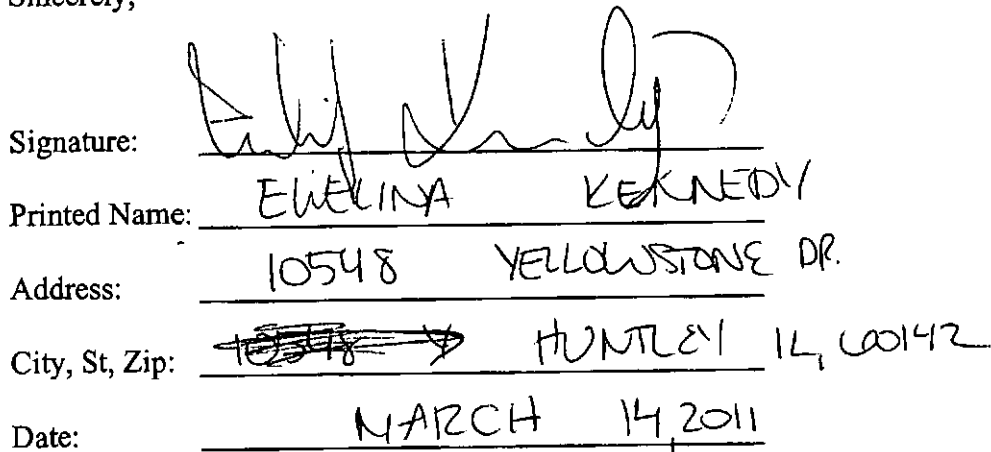 Sincerely,
Signature:
Printed Name: KENNEDY
Address: 10548 YELLOWSTONE DR.
City, St, Zip: HUNTLEY IL, 60142
Date: MARCH 14, 2011